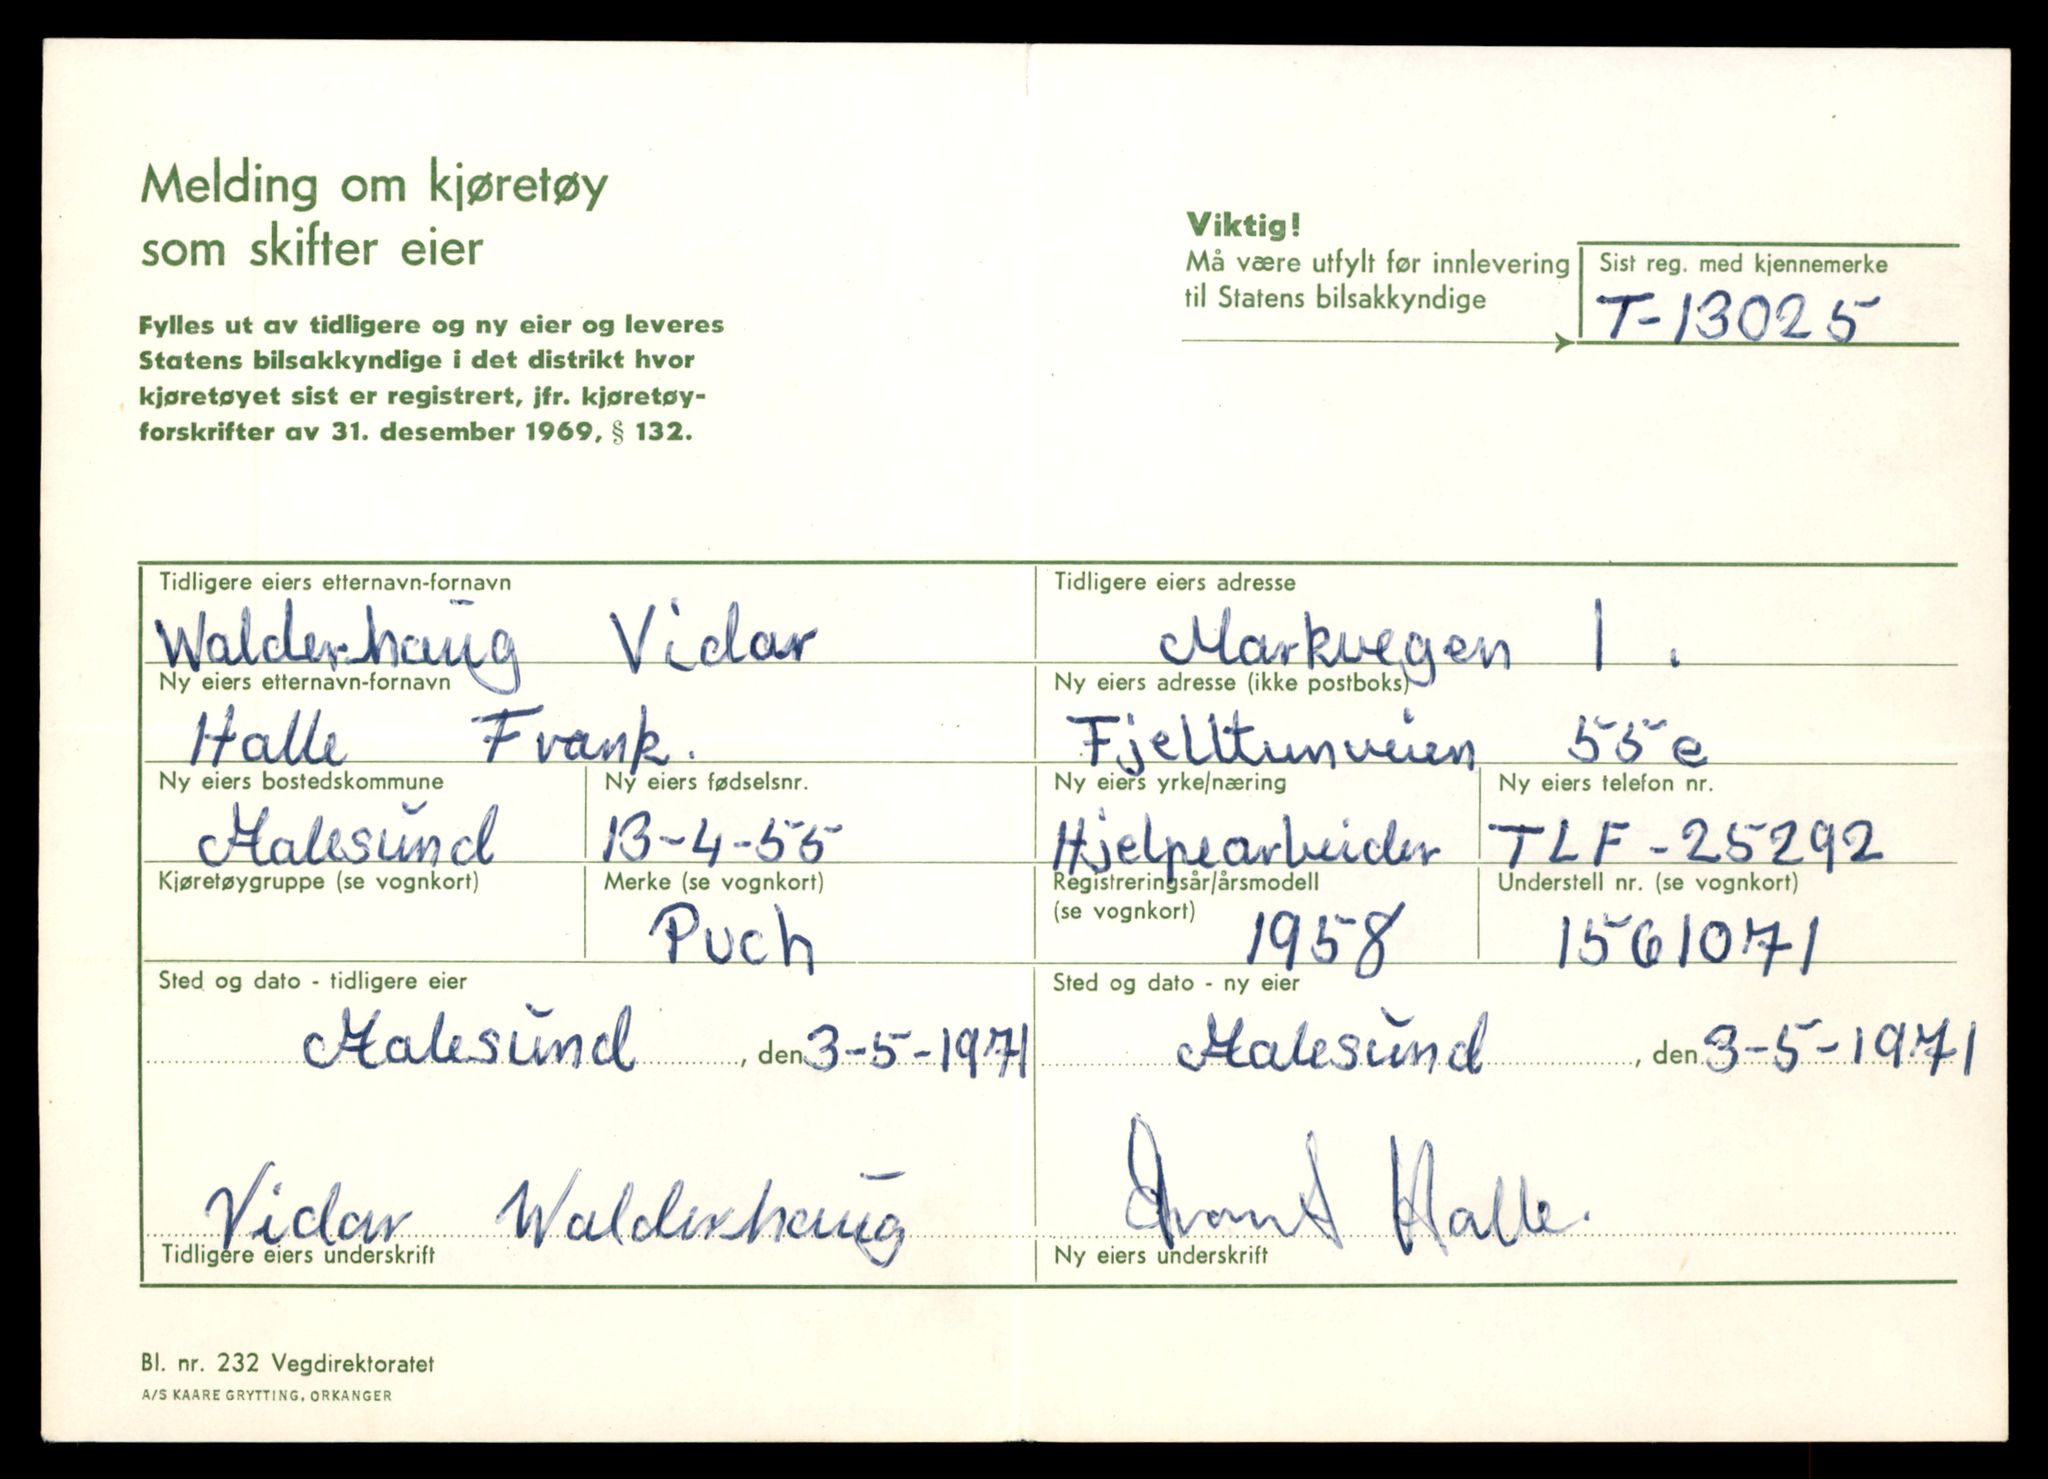 Melding om kjøretøy
som skifter eier
Fylles ut av tidligere og ny eier og leveres
Statens bilsakkyndige i det distrikt hvor
kjøretøyet sist er registrert, jfr. kjøretøy-
forskrifter av 31. desember 1969, § 132.
Viktig!
Må være utfylt før innlevering
til Statens bilsakkyndige
Sist reg. med kjennemerke
T-13025
Tidligere eiers etternavn-fornavn
Walderhaug Vidar
Tidligere eiers adresse
Markvegen 1.
Ny eiers etternavn-fornavn
Halle Frank.
Ny eiers adresse (ikke postboks)
Fjelltunveien 55e
Ny eiers bostedskommune
Aalesund
Ny eiers fødselsnr.
13-4-55
Ny eiers yrke/næring
Hjelpearbeider
Ny eiers telefon nr.
TLF-25292
Kjøretøygruppe (se vognkort)
Merke (se vognkort)
Puch
Registreringsår/årsmodell
(se vognkort)
1958
Understell nr. (se vognkort)
1561071
Sted og dato - tidligere eier
Aalesund, den 3-5-1971
Sted og dato - ny eier
Aalesund, den 3-5-1971
Vidar Walderhaug
Tidligere eiers underskrift
Frank Halle.
Ny eiers underskrift
Bl. nr. 232 Vegdirektoratet
A/S KAARE GRYTTING, ORKANGER